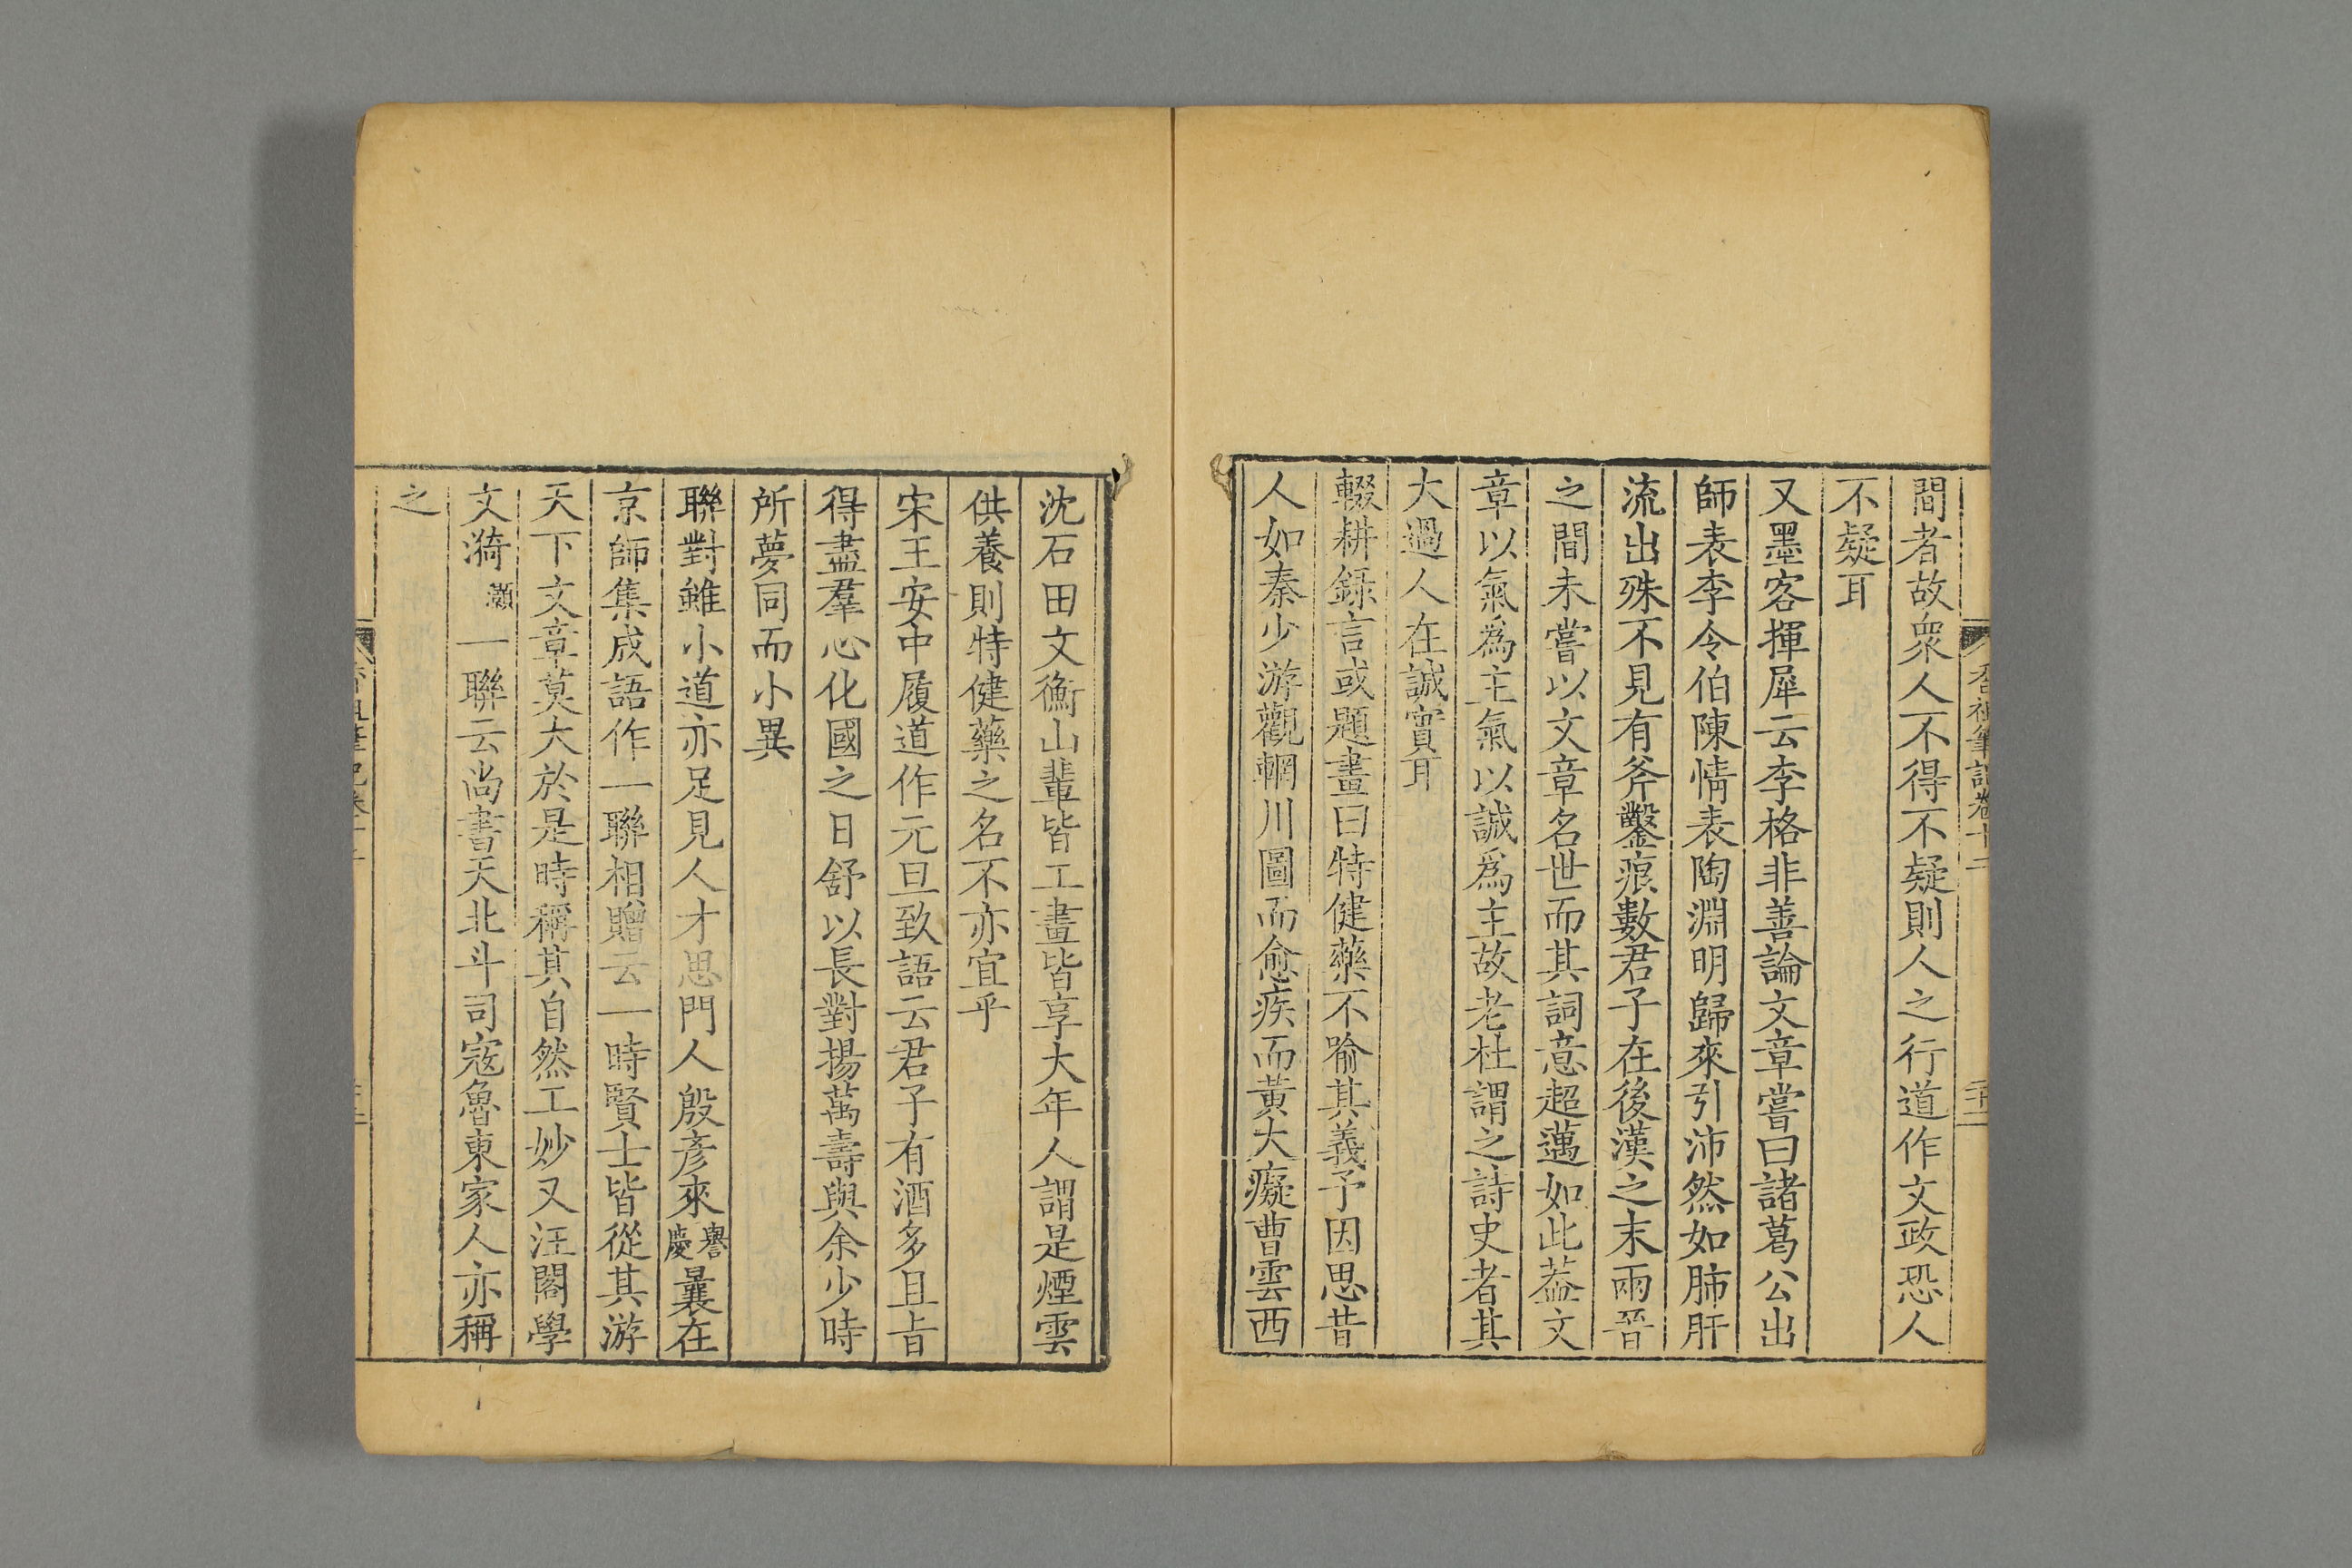 間者故衆人不得不疑則人之行道作文政恐人
不疑耳
又墨客揮犀云李格非善論文章嘗曰諸葛公出
師表李令伯陳情表陶淵明歸來引沛然如肺肝
流出殊不見有斧鑿痕數君子在後漢之末兩晉
之間未嘗以文章名世而其詞意超邁如此葢文
章以氣爲主氣以誠爲主故老杜謂之詩史者其
大過人在誠實耳
輟耕録言或題畫曰特健藥不喻其義予因思昔
人如秦少游觀輞川圖而愈疾而黃大癡曹雲西
沈石田文衡山輩皆工畫皆享大年人謂是煙雲
供養則特健藥之名不亦宜乎
宋王安中履道作元旦致語云君子有酒多且旨
得盡羣心化國之日舒以長對揚萬壽與余少時
所夢同而小異
聯對雖小道亦足見人才思門人殷彥來譽慶曩在
京師集成語作一聯相贈云一時賢士皆從其游
天下文章莫大於是時稱其自然工妙又汪閣學
文漪灝一聯云尚書天北斗司寇魯東家人亦稱
之